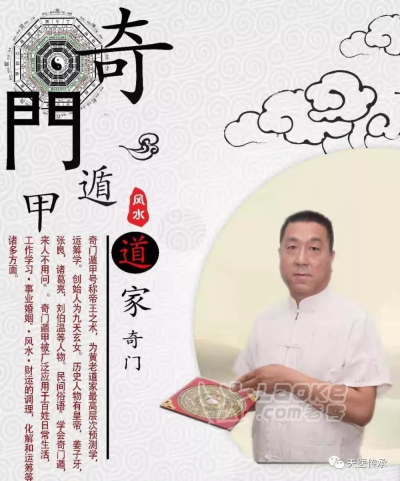 奇
門
遁
甲
风水
道家奇门
奇门遁甲号称帝王之术，为黄老道家最高层次预测学，
运筹学。创始人为九天玄女。历史人物有皇帝，姜子牙，
张良，诸葛亮，刘伯温等人物，民间俗语，学会奇门遁，
来人不用问。。奇门遁甲被广泛应用于百姓日常生活，
工作学习·事业婚姻·风水·财运的调理，化解和运筹等
诸多方面。
天医传承